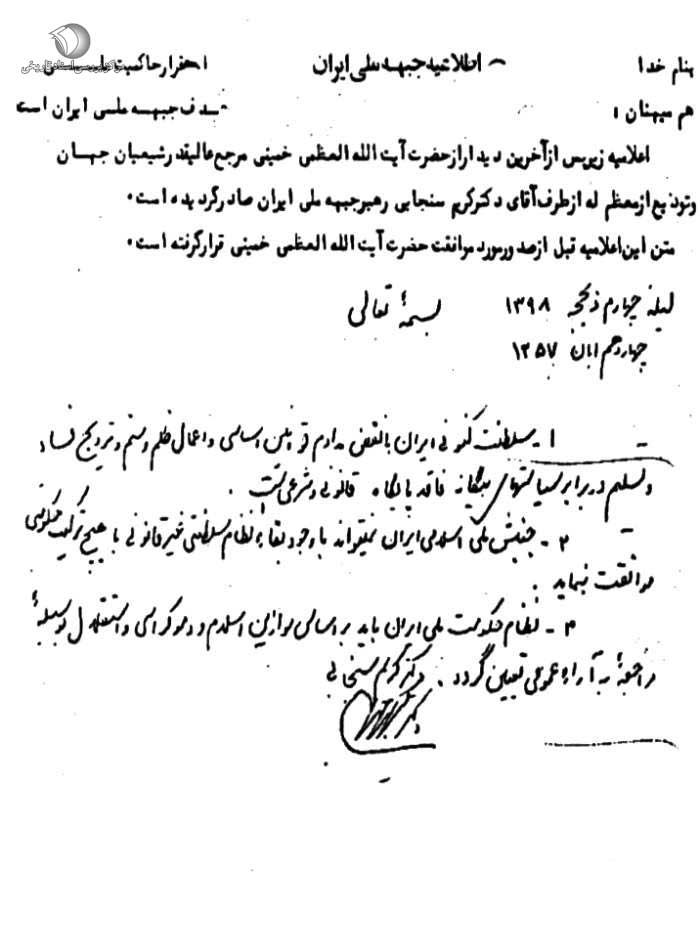 مرکز بررسی اسناد تاریخی
بنام خدا
اطلاعیه جبهه ملی ایران
استقرار حاکمیت ملی
هم میهنان :
هدف جبهه ملی ایران است
اعلامیه زیر پس از آخرین دیدار از حضرت آیت الله العظمی خمینی مرجع عالیقدر شیعیان جهان
وتودیع از معظم له از طرف آقای دکتر کریم سنجابی رهبر جبهه ملی ایران صادر گردیده است۰
متن این اعلامیه قبل از صدور مورد موافقت حضرت آیت الله العظمی خمینی قرار گرفته است۰
بسمه تعالی
لیله چهارم ذیحجه ۱۳۹۸
چهاردهم ابان ۱۳۵۷
۱ - سلطنت کنونی ایران با نقض مداوم قوانین اساسی و اعمال ظلم و ستم و ترویج فساد
و تسلیم در برابر سیاستهای بیگانه فاقد پایگاه قانونی و شرعی است .
۲ - جنبش ملی اسلامی ایران نمیتواند با وجود بقاء نظام سلطنتی غیر قانونی با هیچ ترکیب حکومتی
موافقت نماید .
۳ - نظام حکومت ملی ایران باید بر اساس موازین اسلام و دموکراسی و استقلال بوسیلهٔ
مراجعهٔ به آراء عمومی تعیین گردد . دکتر کریم سنجابی